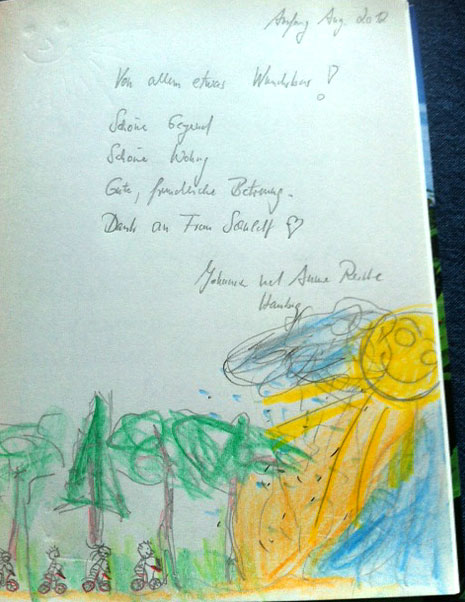 Anfang Aug. 2012
Von allem etwas Wunderbar!
Schöne Gegend
Schöne Wohng
Gute, freundliche Betreuung.
Dank an Frau
Johanna und Anne
Hamburg